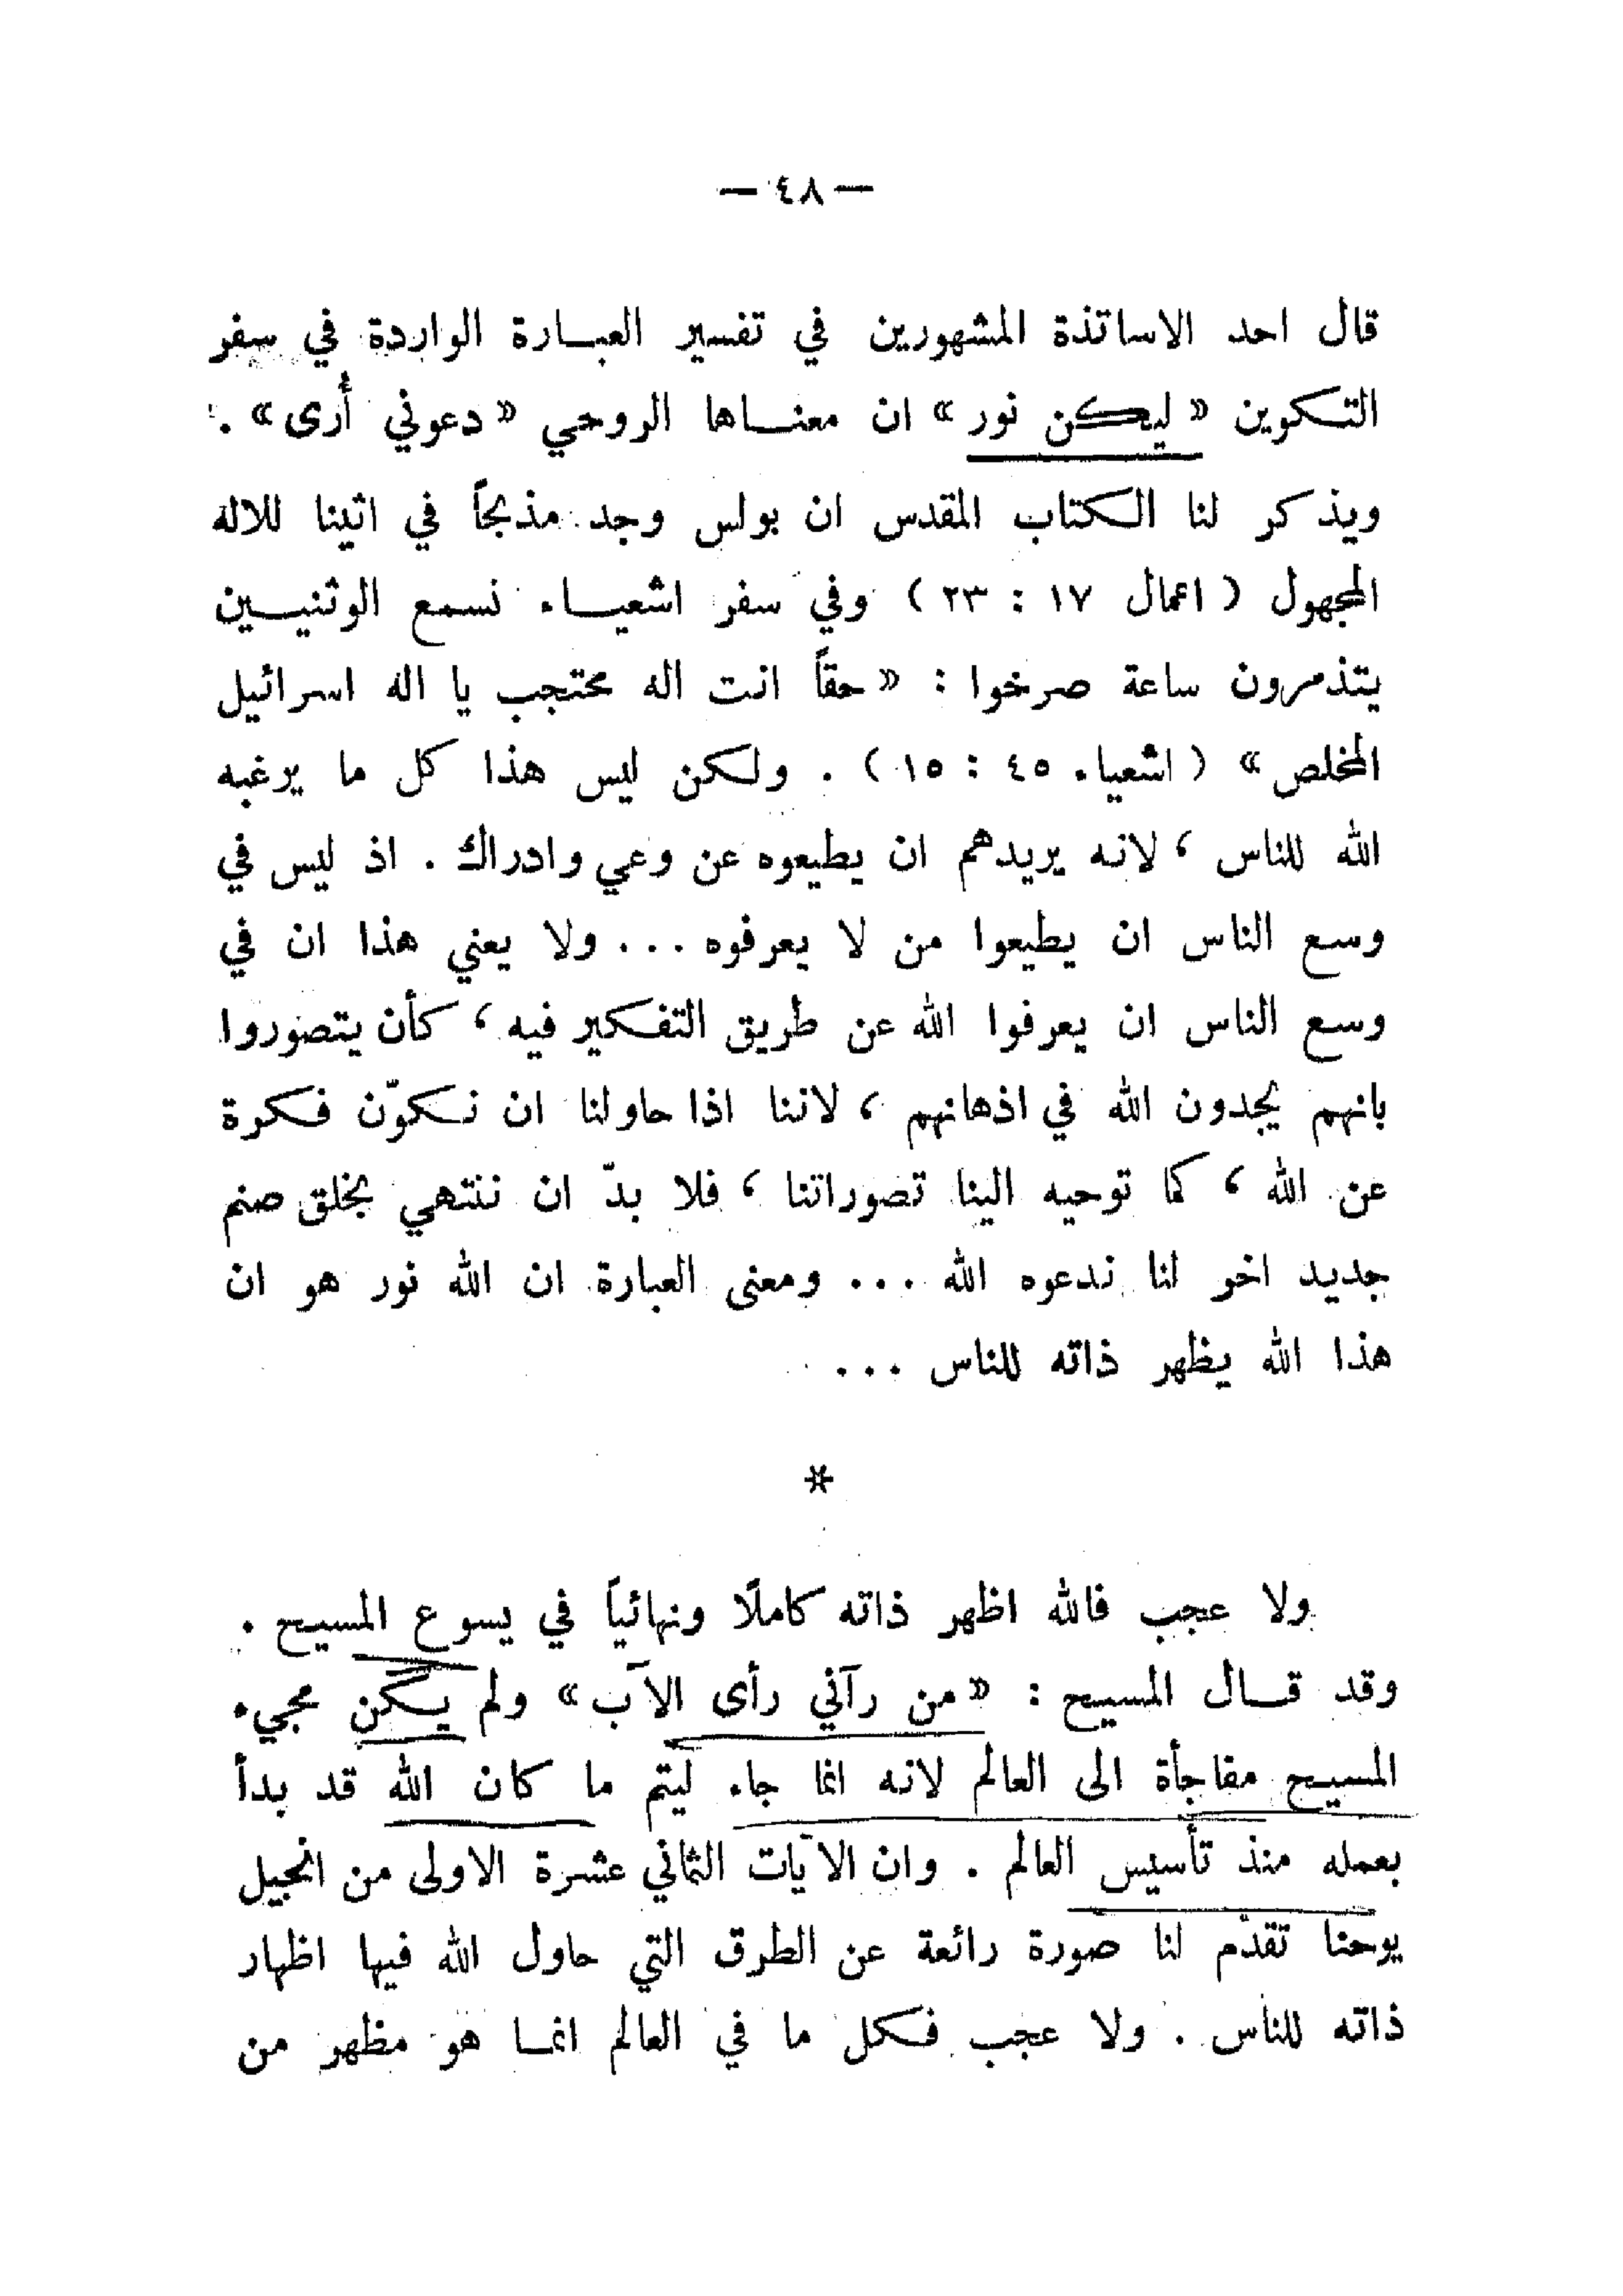 — ٤٨ —
قال احد الاساتذة المشهورين في تفسير العبارة الواردة في سفر
التكوين « ليكن نور » ان معناها الروحي « دعوني أُرى » .
ويذكر لنا الكتاب المقدس ان بولس وجد مذبحاً في اثينا للاله
المجهول ( اعمال ١٧ : ٢٣ ) وفي سفر اشعياء نسمع الوثنيين
يتذمرون ساعة صرخوا : « حقاً انت اله محتجب يا اله اسرائيل
المخلص » ( اشعياء ٤٥ : ١٥ ) . ولكن ليس هذا كل ما يرغبه
الله للناس ، لانه يريدهم ان يطيعوه عن وعي وادراك . اذ ليس في
وسع الناس ان يطيعوا من لا يعرفوه ... ولا يعني هذا ان في
وسع الناس ان يعرفوا الله عن طريق التفكير فيه ، كأن يتصوروا
بانهم يجدون الله في اذهانهم ، لاننا اذا حاولنا ان نكوّن فكرة
عن الله ، كما توحيه الينا تصوراتنا ، فلا بدّ ان ننتهي بخلق صنم
جديد اخر لنا ندعوه الله ... ومعنى العبارة ان الله نور هو ان
هذا الله يظهر ذاته للناس ...
*
ولا عجب فالله اظهر ذاته كاملًا ونهائياً في يسوع المسيح .
وقد قال المسيح : « من رآني رأى الآب » ولم يكن مجيء
المسيح مفاجأة الى العالم لانه انما جاء ليتم ما كان الله قد بدأ
بعمله منذ تأسيس العالم . وان الآيات الثماني عشرة الاولى من انجيل
يوحنا تقدّم لنا صورة رائعة عن الطرق التي حاول الله فيها اظهار
ذاته للناس . ولا عجب فكل ما في العالم انما هو مظهر من